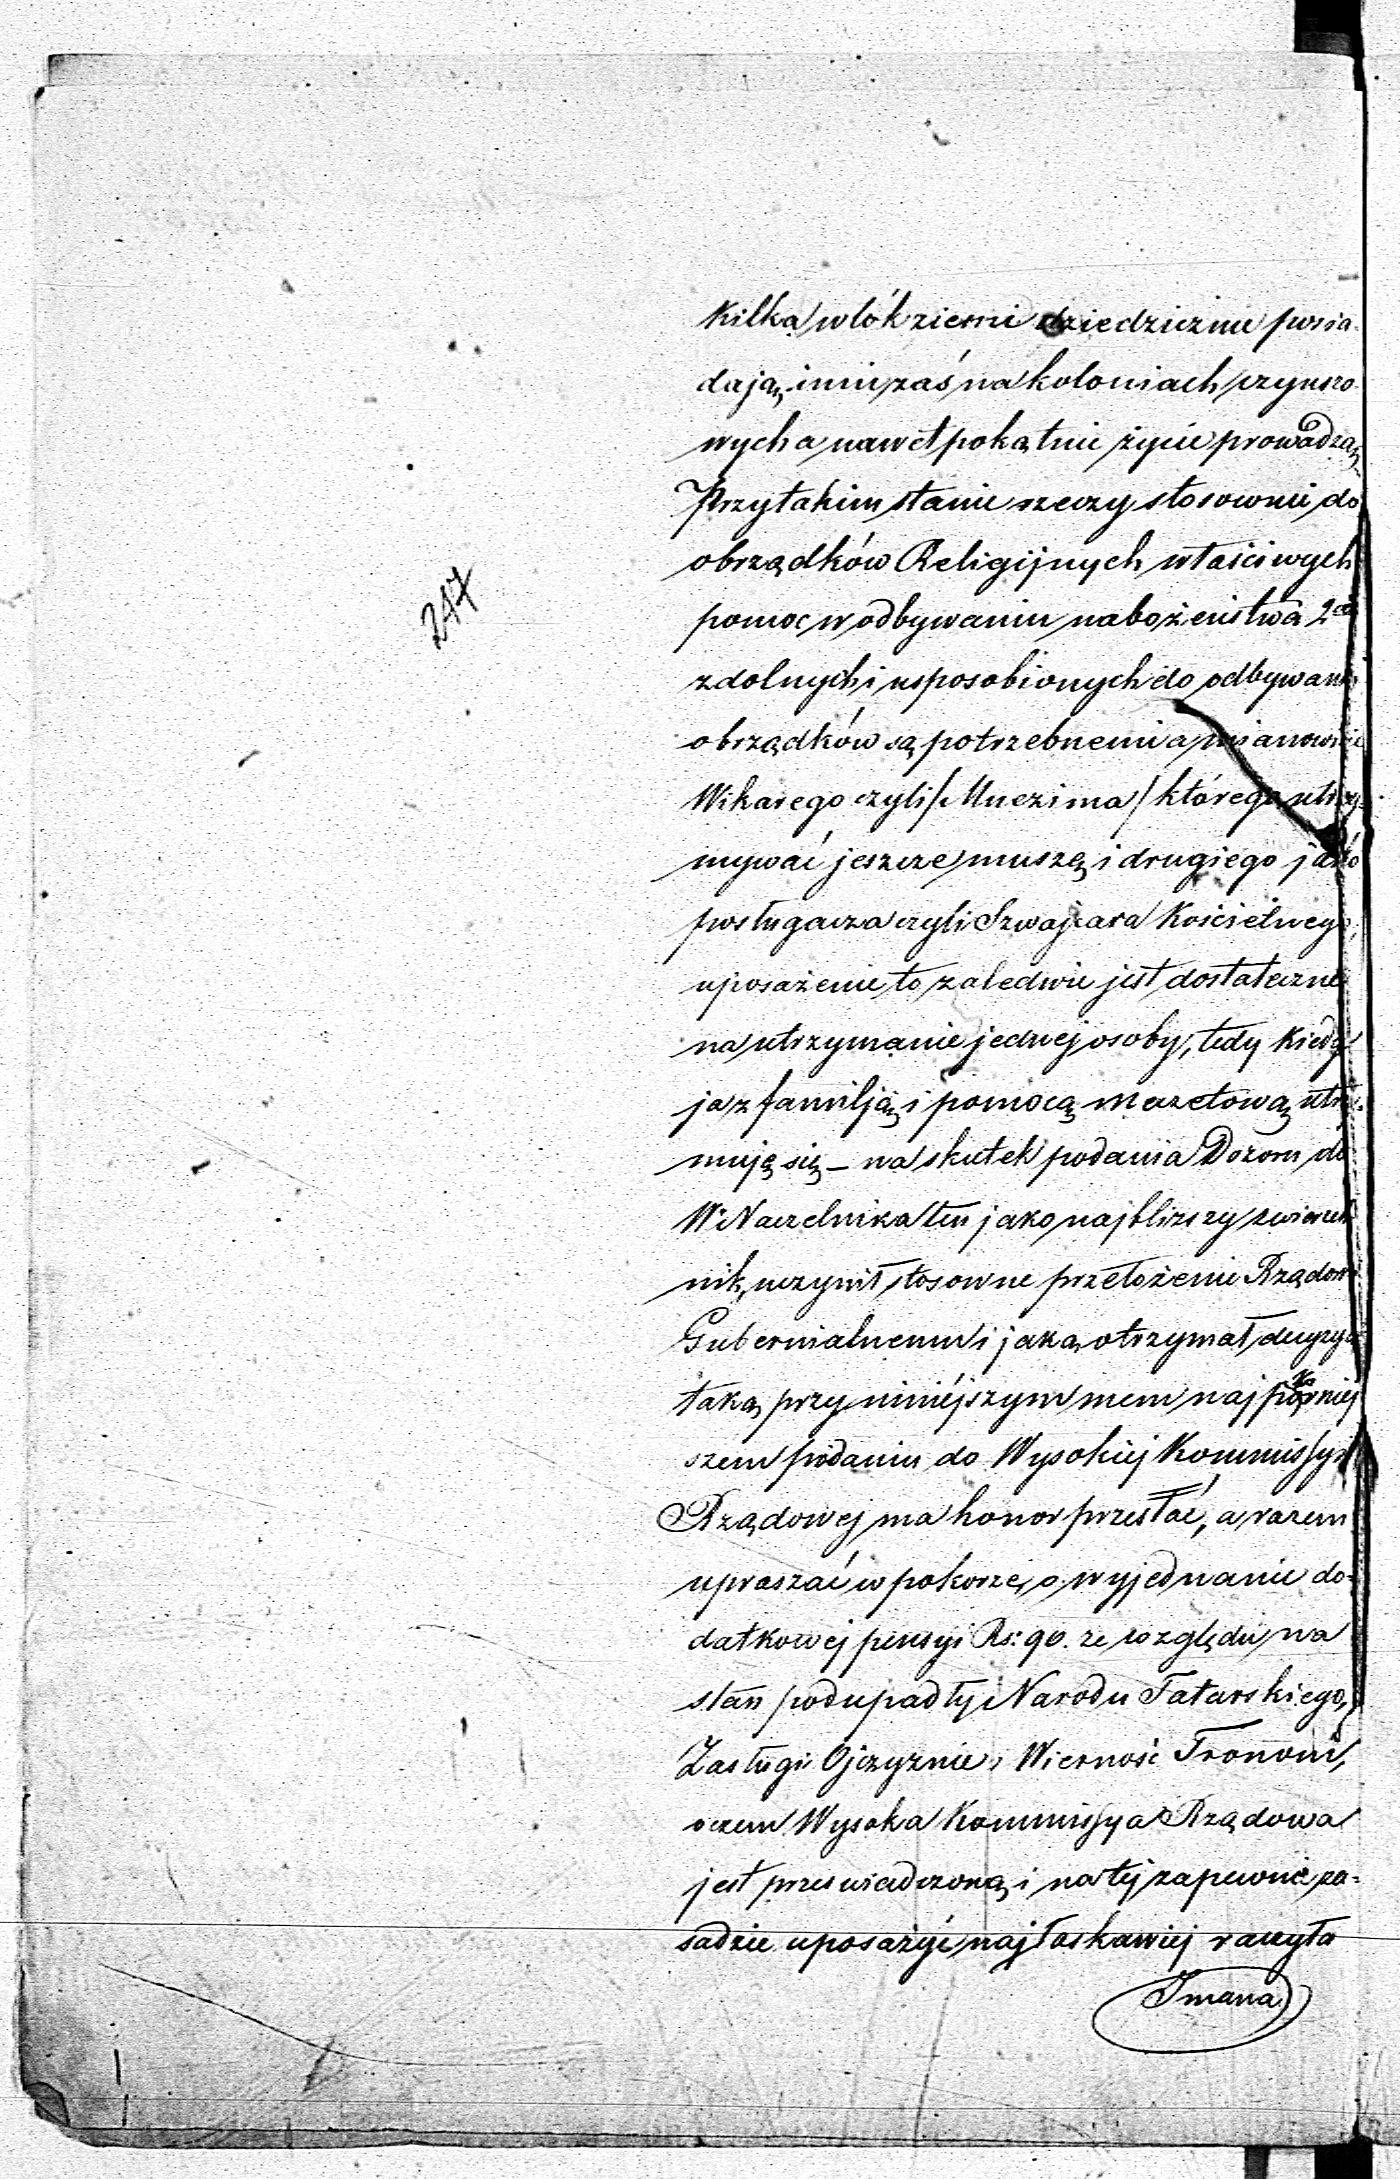 kilka włók ziemi dziedzicznie posia-
dają, inni zaś na koloniach czynszo-
wych a nawet pokątnie życie prowadzą,
Przy takim stanie rzeczy stosownie do
obrządków Religijnych właściwych
pomoc w odbywaniu nabożeństwa 2ch
247
zdolnych i usposobionych do odbywania
obrządków są potrzebnemi a mianowicie
Wikarego czyli /Muezima/ którego utrzy-
mywać jeszcze muszę, i drugiego jako
posługacza czyli Szwajcara Kościelnego,
uposażenie to zaledwie jest dostateczne
na utrzymanie jednej osoby, tedy kiedy
ja z familją i pomocą utrzy-
muję się – na skutek podania Dozoru do
W Naczelnika ten jako najbliższy zwierzch-
nik, uczynił stosowne przełożenie Rządowi
Gubernialnemu i jaką otrzymał decyzyą
taką przy niniéjszym mem najpokorniej
szem podaniu do Wysokiéj Kommissyi
Rządowej ma honor przesłać, a razem
upraszać w pokorze, o wyjednanie do-
datkowej pensyi Rs: 90. ze względu na
stan podupadły Narodu Tatarskiego,
Zasługi Ojczyznie i Wierność Tronowi,
o czem Wysoka Kommissya Rządowa
jest przeswiadczoną i na téj zapewne za-
sadzie uposażyć najłaskawiéj raczyła
Imana